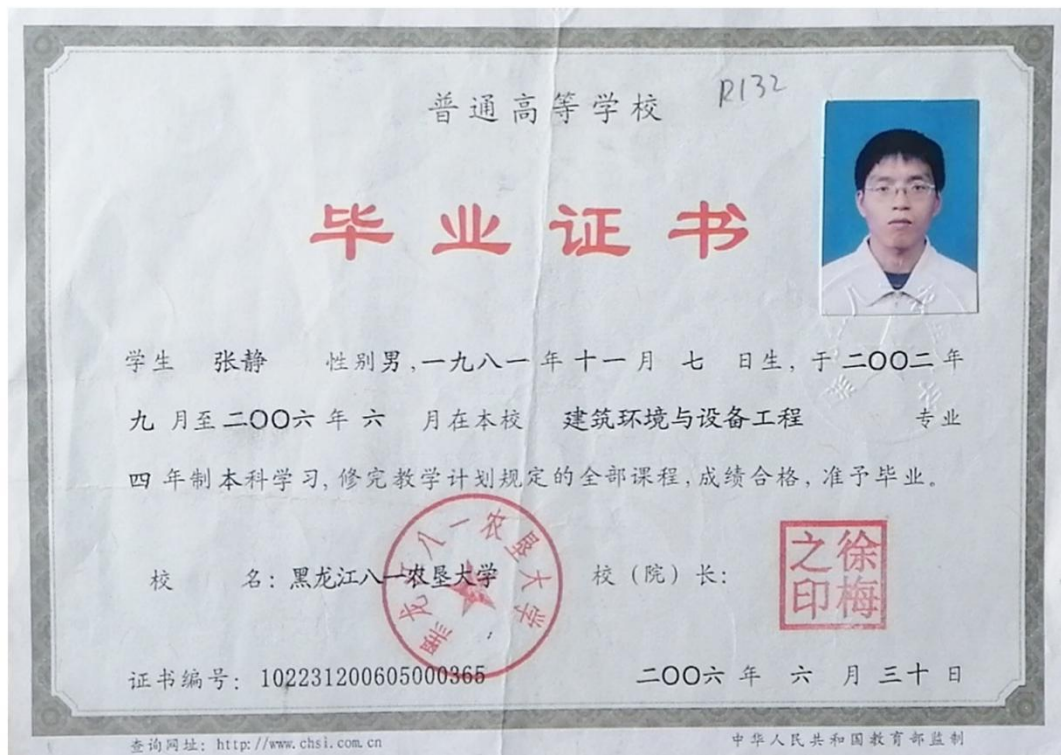 R132
普通高等学校
毕业证书
学生 张静 性别男,一九八一年十一月 七 日生,于二〇〇二年
九 月至二〇〇六年 六 月在本校 建筑环境与设备工程 专业
四 年制本科学习,修完教学计划规定的全部课程,成绩合格,准予毕业。
黑龙江八一农垦大学
校 名:黑龙江八一农垦大学 校(院)长:
徐梅之印
证书编号:102231200605000365 二〇〇六年 六 月三十日
查询网址:http://www.chsi.com.cn 中华人民共和国教育部监制